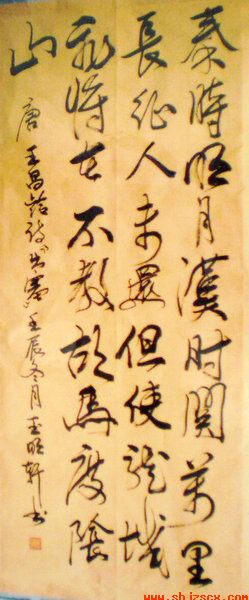 秦時明月漢时関萬里
長征人未還但使龍城
飛將在不教胡馬度陰
山
唐王昌龄诗出塞壬辰冬月明軒书
www.shjzscx.com